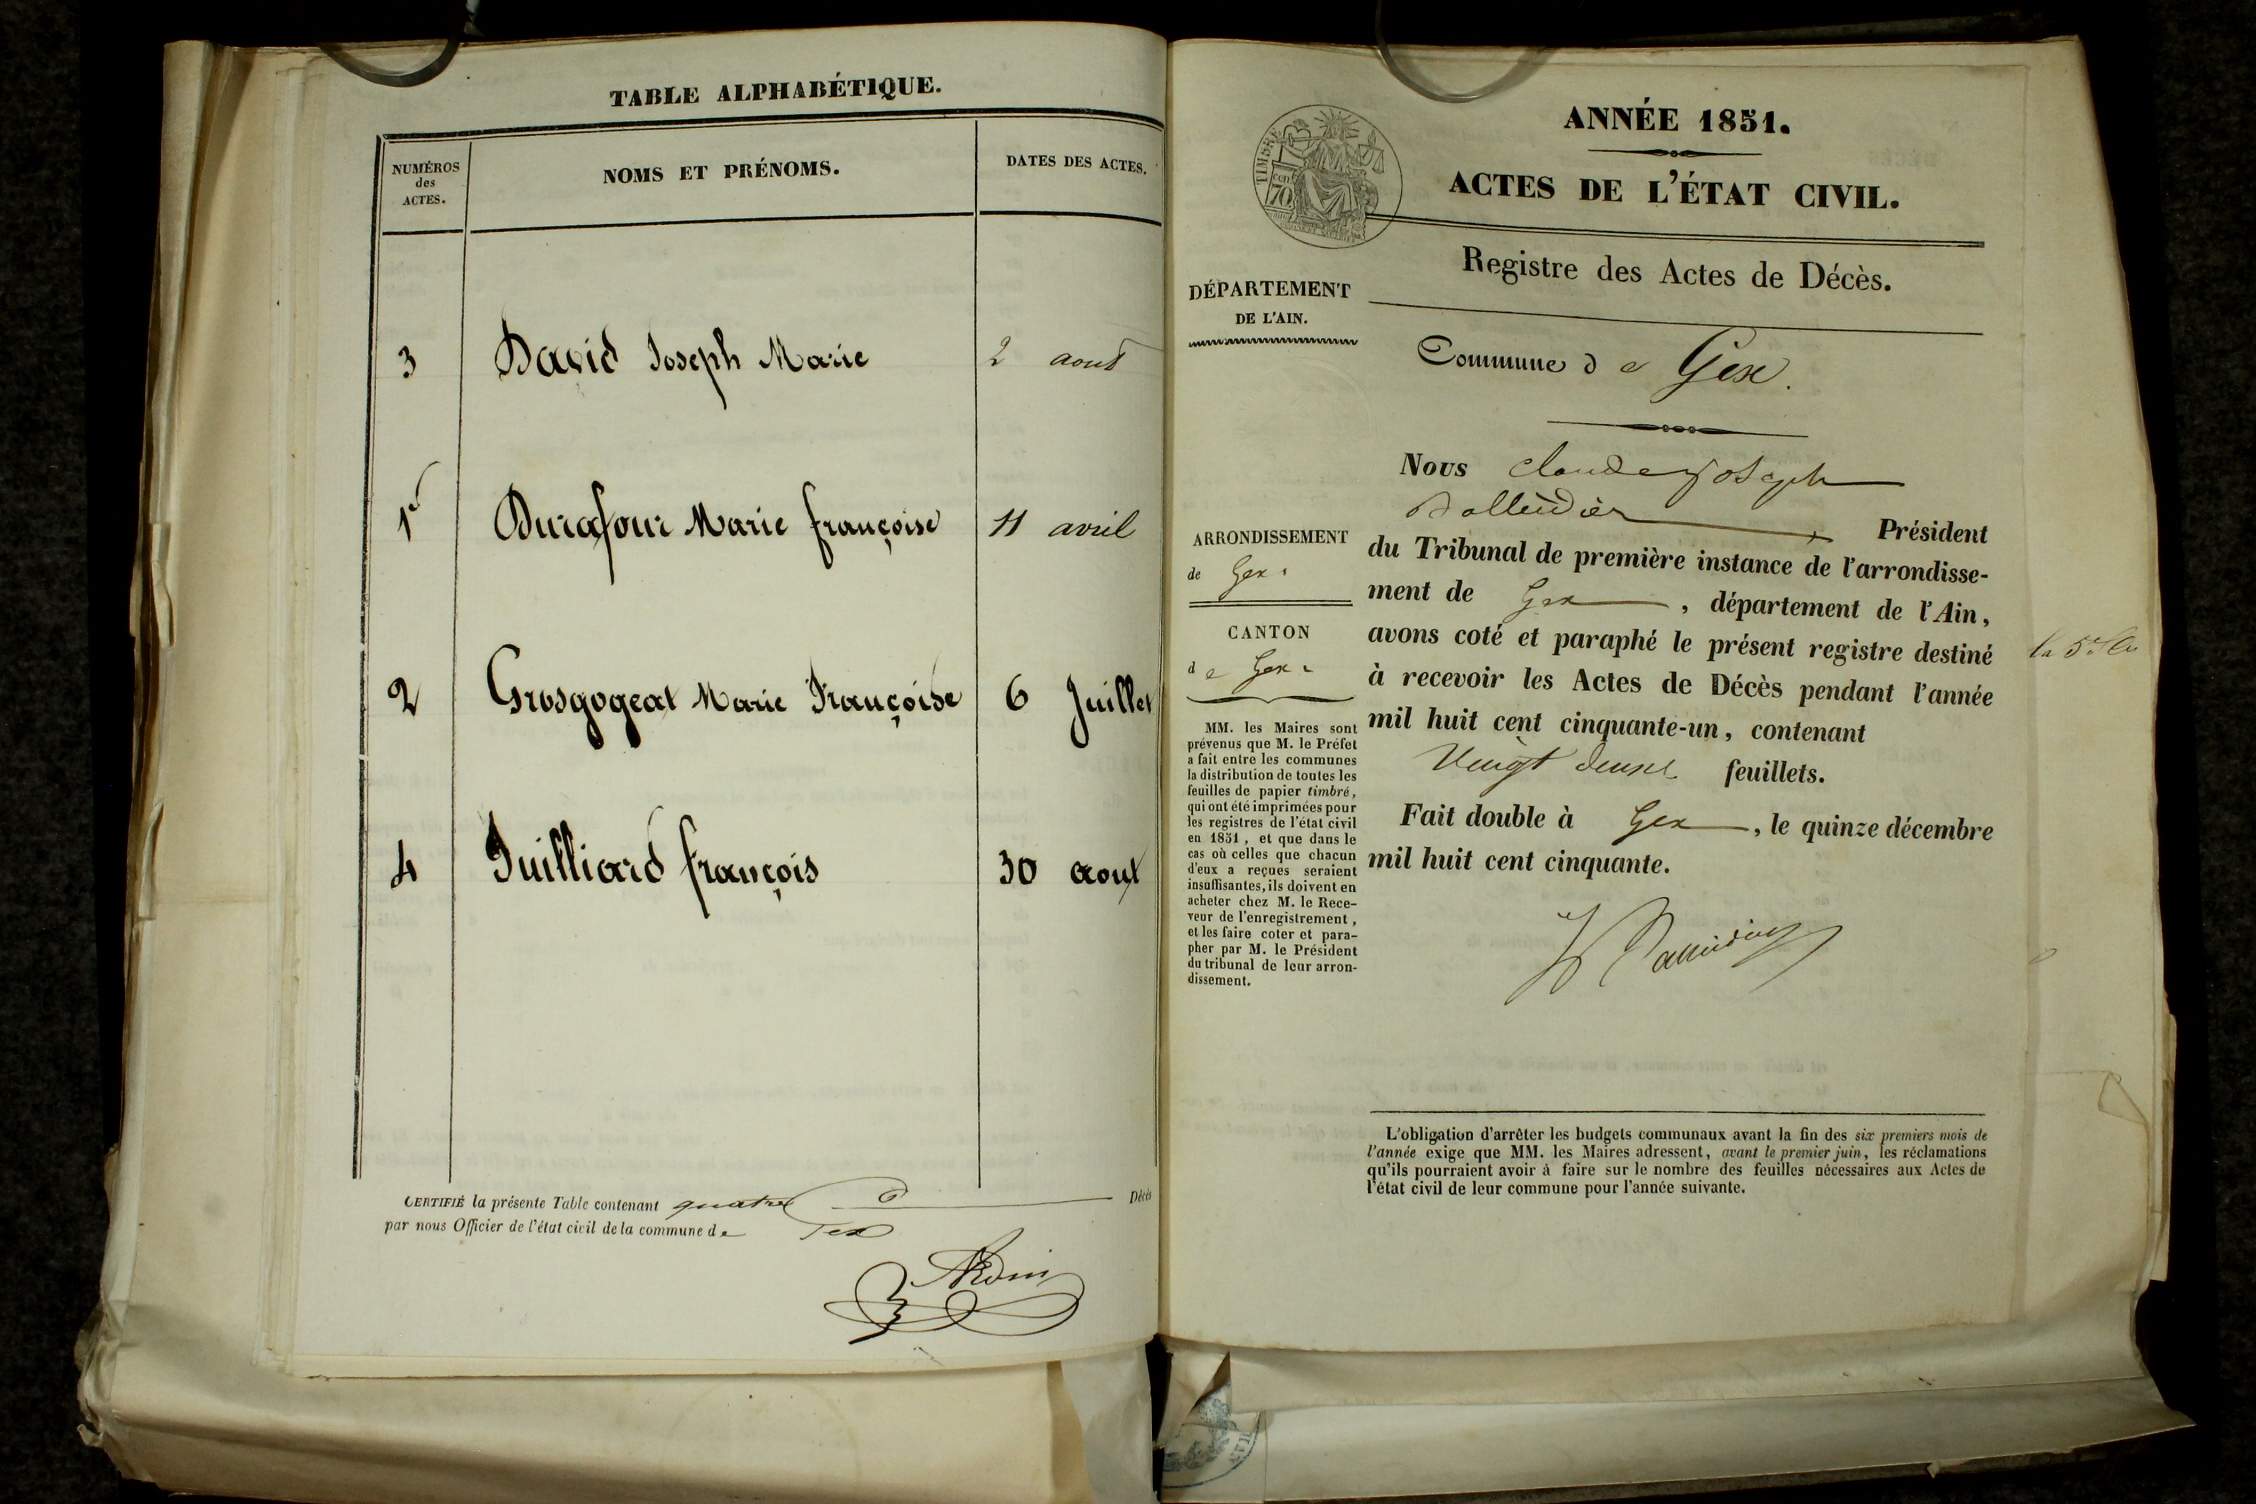 TABLE ALPHABÉTIQUE.
NUMÉROS
des
ACTES.
NOMS ET PRÉNOMS.
DATES DES ACTES.
3 David Joseph Marie 2 aout
1er Durafour Marie françoise 11 avril
2 Grosgogeat Marie Françoise 6 Juillet
4 Juilliard françois 30 aout
CERTIFIÉ la présente Table contenant quatre Décès
par nous Officier de l'état civil de la commune de
ANNÉE 1851.
ACTES DE L'ÉTAT CIVIL.
TIMBRE
70
Registre des Actes de Décès.
DÉPARTEMENT
DE L'AIN.
Commune de Gex.
ARRONDISSEMENT
de Gex.
CANTON
de Gex.
MM. les Maires sont
prévenus que M. le Préfet
a fait entre les communes
la distribution de toutes les
feuilles de papier timbré,
qui ont été imprimées pour
les registres de l'état civil
en 1851, et que dans le
cas où celles que chacun
d'eux a reçues seraient
insuffisantes, ils doivent en
acheter chez M. le Rece-
veur de l'enregistrement,
et les faire coter et para-
pher par M. le Président
du tribunal de leur arron-
dissement.
Nous Claude joseph
Président
du Tribunal de première instance de l'arrondisse-
ment de Gex, département de l'Ain,
avons coté et paraphé le présent registre destiné
à recevoir les Actes de Décès pendant l'année
mil huit cent cinquante-un, contenant
Vingt deux feuillets.
Fait double à Gex, le quinze décembre
mil huit cent cinquante.
L'obligation d'arrêter les budgets communaux avant la fin des six premiers mois de
l'année exige que MM. les Maires adressent, avant le premier juin, les réclamations
qu'ils pourraient avoir à faire sur le nombre des feuilles nécessaires aux Actes de
l'état civil de leur commune pour l'année suivante.